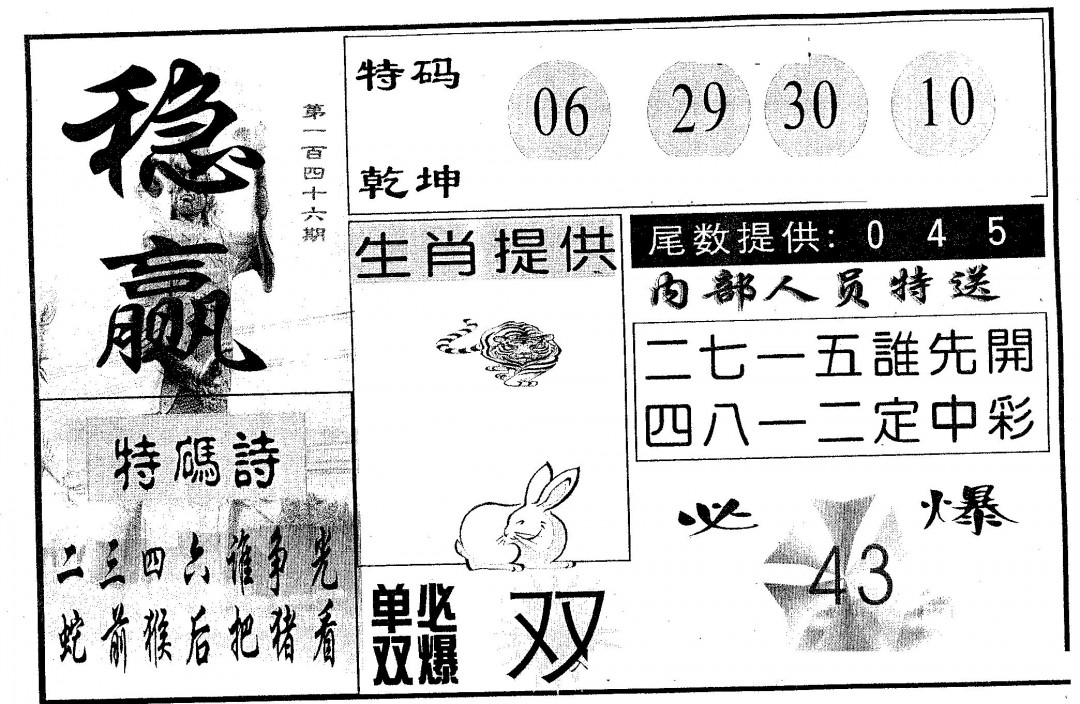 稳赢
第一百四十六期
特码
乾坤
06 29 30 10
生肖提供
尾数提供: 0 4 5
内部人员特送
二七一五誰先開
四八一二定中彩
特碼詩
二三四六谁争光
蛇前猴后把猪看
单双必爆
双
必爆
43